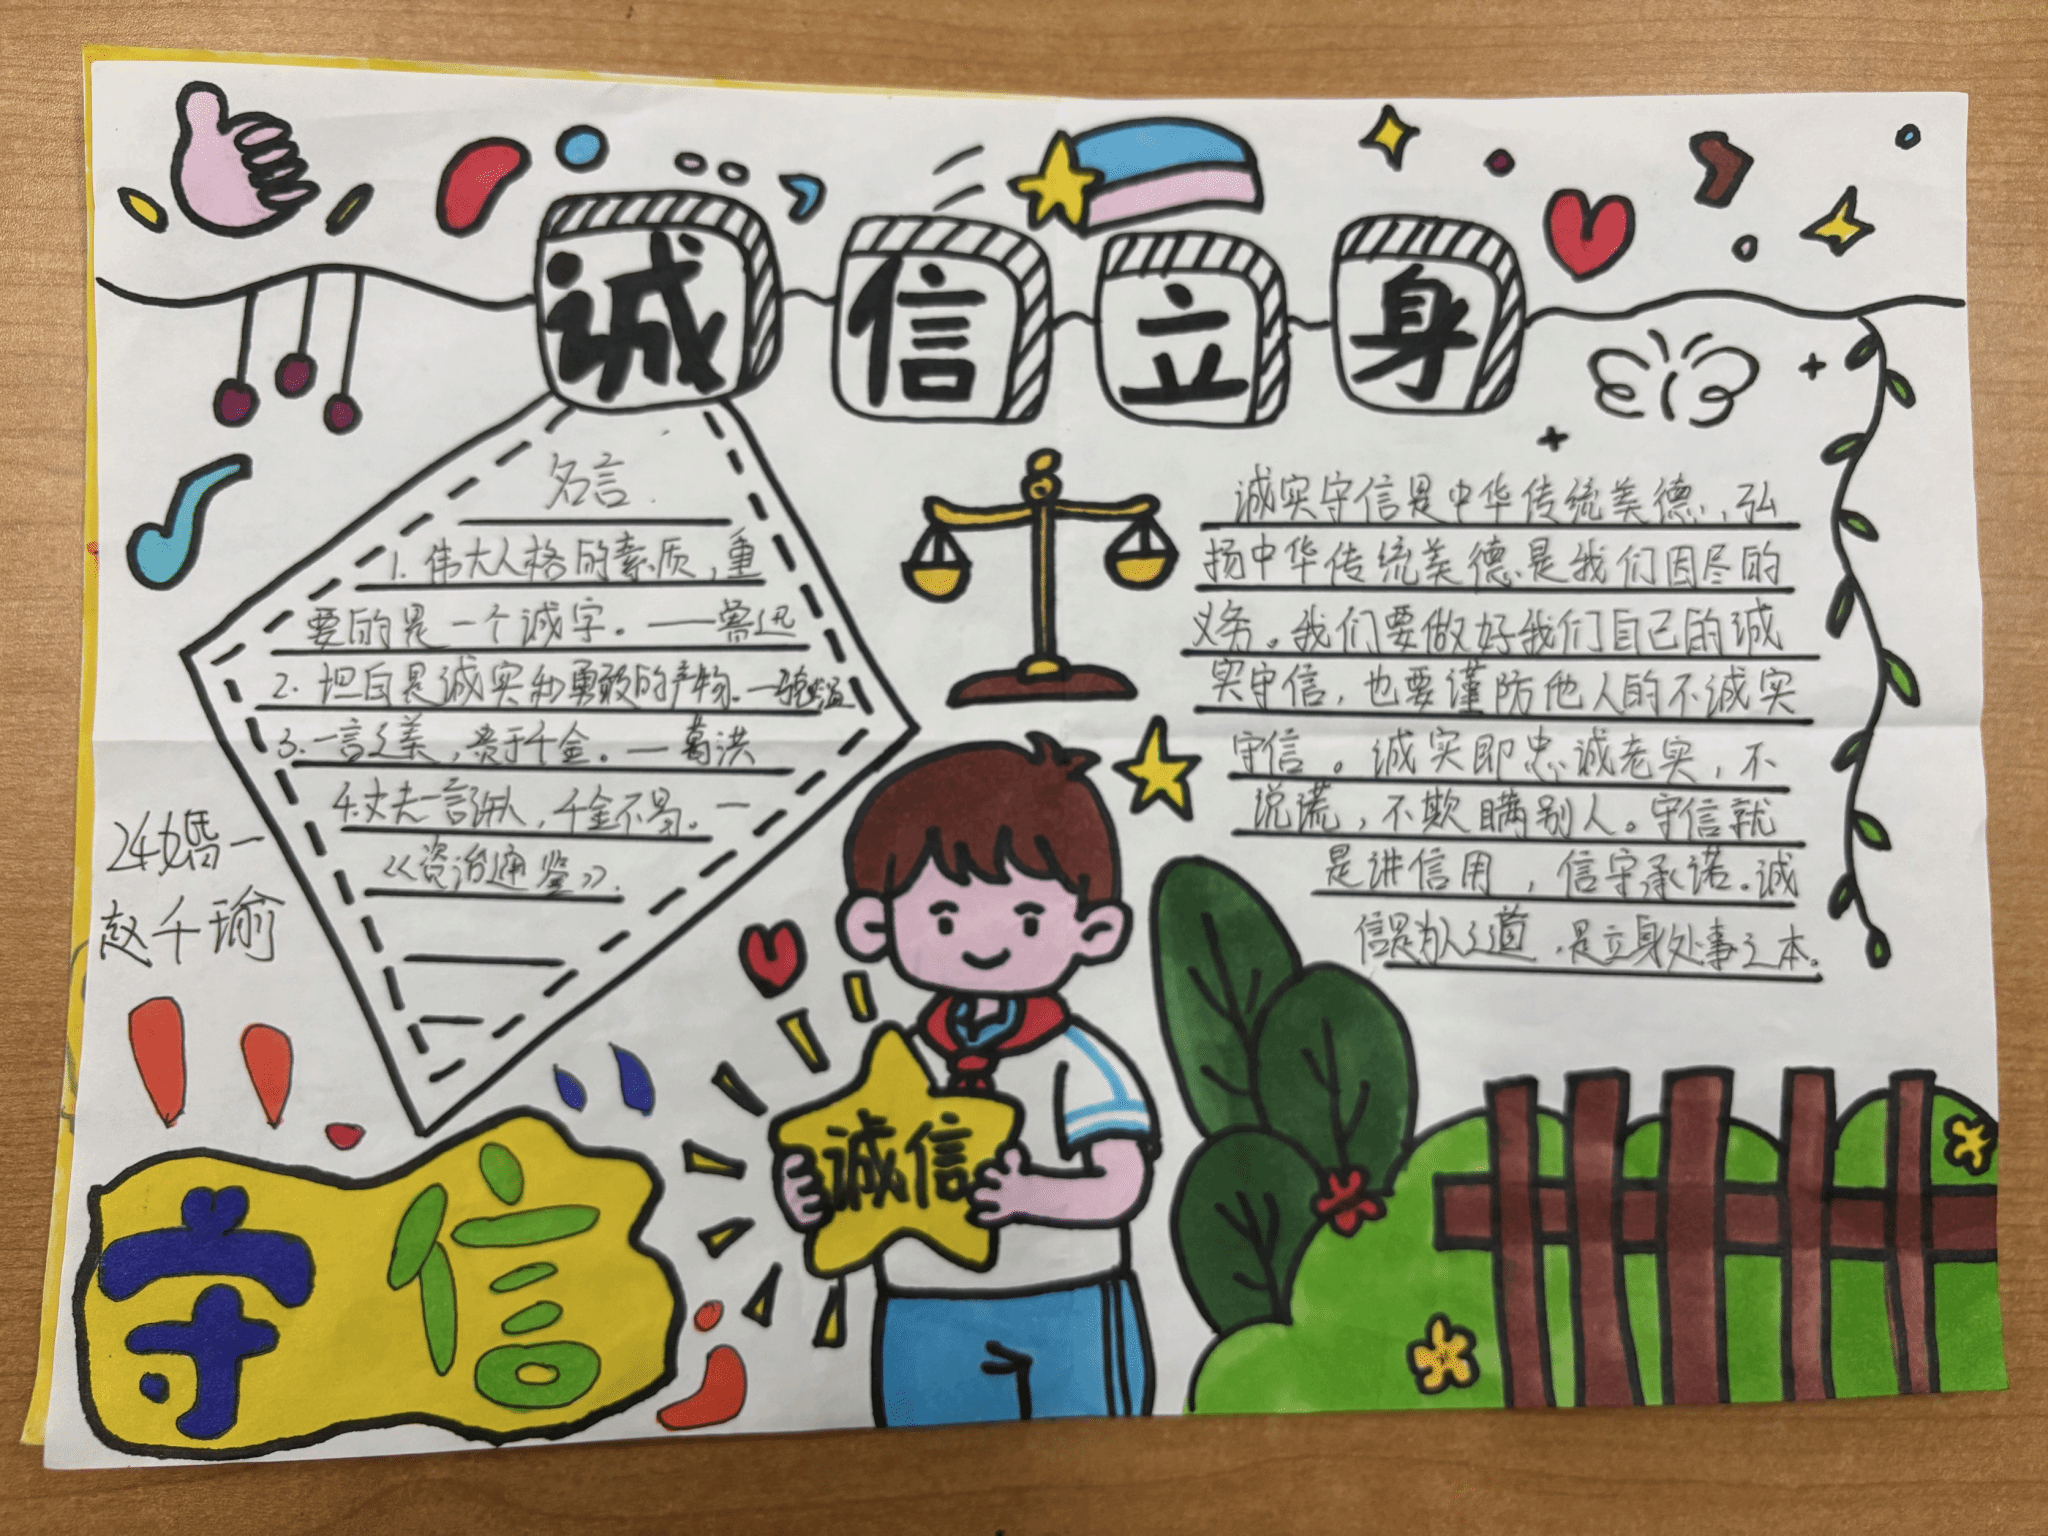 诚信立身
名言
1. 伟大人格的素质，重
要的是一个诚字。——鲁迅
2. 坦白是诚实和勇敢的产物。—
3. 一言之美，贵于千金。—葛洪
4.丈夫一言许人，千金不易。—
《资治通鉴》.
24婚一
赵千瑜
诚实守信是中华传统美德，弘
扬中华传统美德是我们因尽的
义务。我们要做好我们自己的诚
实守信，也要谨防他人的不诚实
守信。诚实即忠诚老实，不
说谎，不欺瞒别人。守信就
是讲信用，信守承诺。诚
信是为人之道，是立身处事之本。
诚信
守信